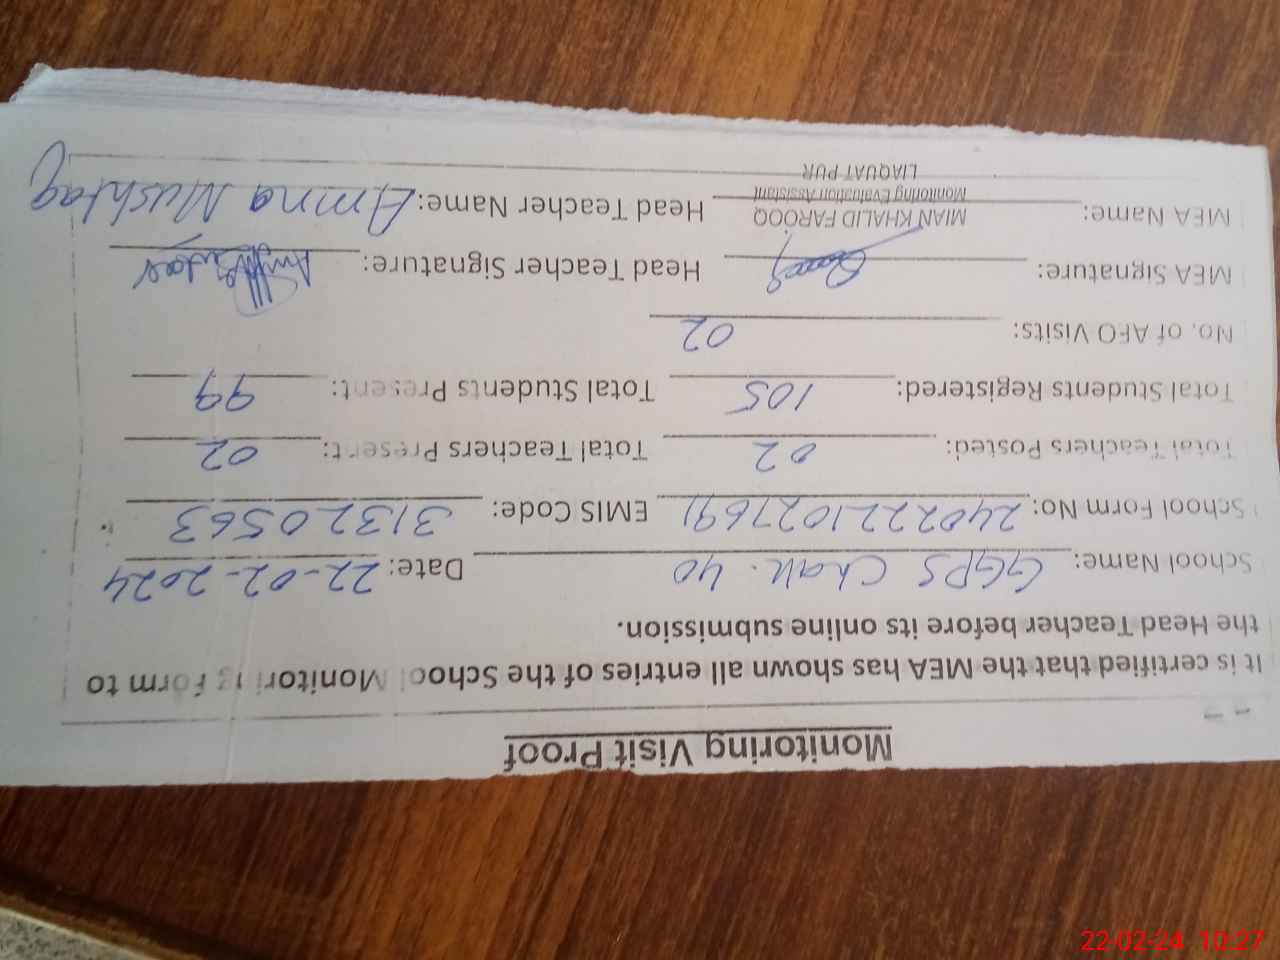 Monitoring Visit Proof
It is certified that the MEA has shown all entries of the School Monitoring Form to
the Head Teacher before its online submission.
School Name: GGPS Chak. 40 Date: 22-02-2024
School Form No: 2402221027691 EMIS Code: 31320563
Total Teachers Posted: 02 Total Teachers Present: 02
Total Students Registered: 105 Total Students Present: 99
No. of AFO Visits: 02
MEA Signature: Head Teacher Signature:
MEA Name: MIAN KHALID FAROOQ Head Teacher Name: Amna Mushtaq
Monitoring Evaluation Assistant
LIAQUAT PUR
22-02-24 10:27